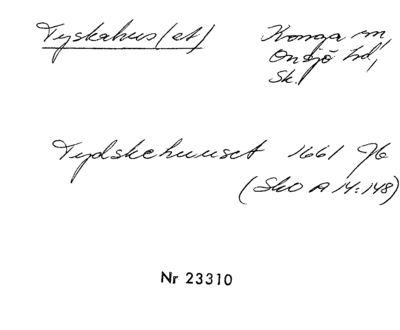 Tyskahus(et)
Konga sn,
Onsjö hd,
Sk.
Tydskehuuset 1661 Jb
(SkO A 14:148)
Nr 23310